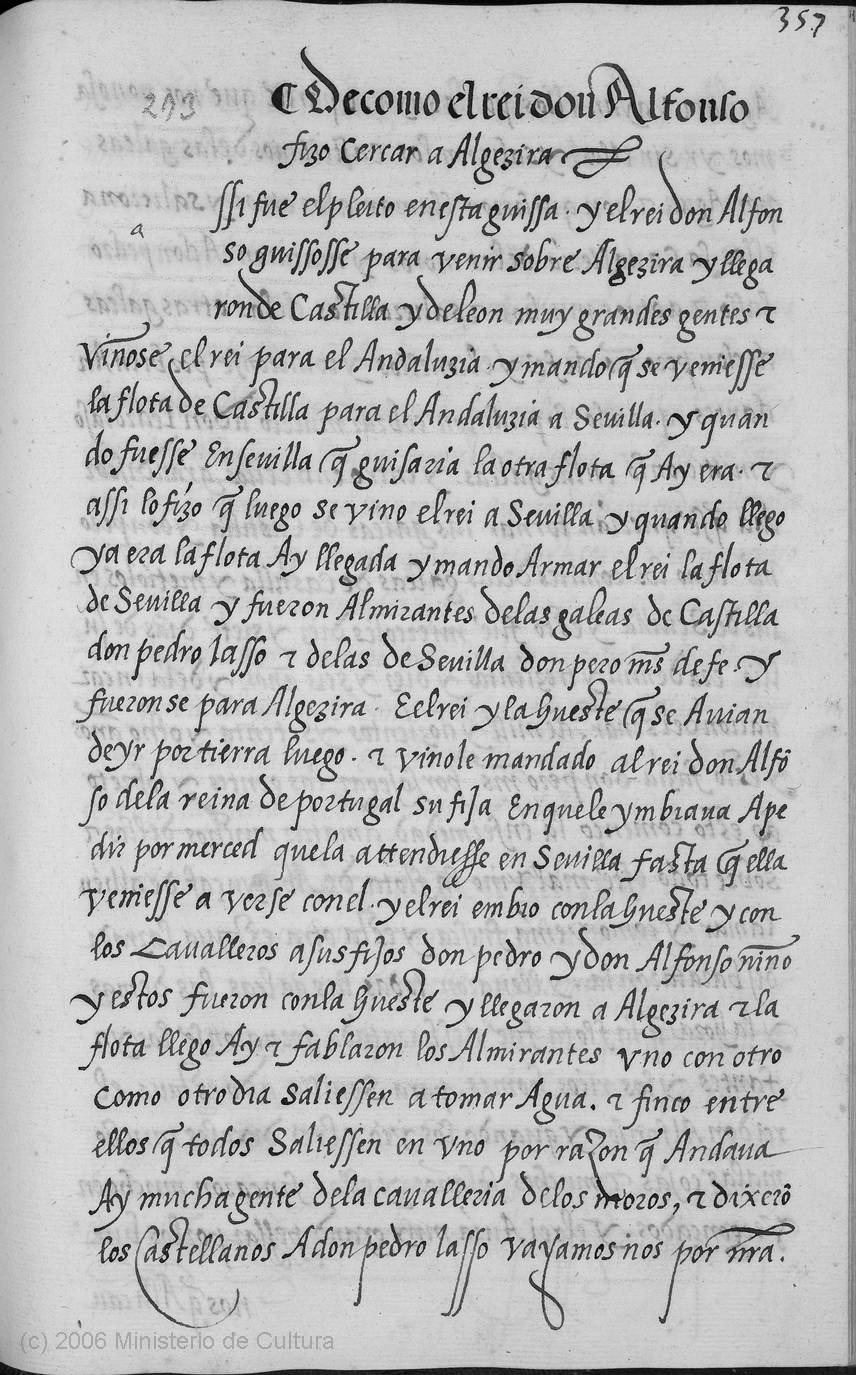 357
293
¶ De como el rei don Alfonso
fizo Cercar a Algezira
a
ssi fue el pleito en esta guissa · y el rei don Alfon
so guissosse para venir sobre Algezira y llega
ron de Castilla y de leon muy grandes gentes ⁊
viñose el rei para el Andaluzia · y mando q̃ se veniesse
la flota de Castilla para el Andaluzia a Sevilla · y quan
do fuesse En sevilla q̃ guisaria la otra flota q̃ Ay era · ⁊
assi lo fizo q̃ luego se vino el rei a Sevilla y quando llego
ya era la flota Ay llegada y mando Armar el rei la flota
de Sevilla y fueron Almirantes de las galeas de Castilla
don pedro lasso ⁊ de las de Sevilla don pero mñs de fe · y
fueronse para Algezira · E el rei y la hueste q̃ se Auian
de yr por tierra luego · ⁊ vinole mandado al rei don Alfõ
so de la reina de portugal su fija En que le ymbiaua Ape
dir por merced que la attendiesse en Sevilla fasta q̃ ella
veniesse a verse con el · y el rei embio con la hueste y con
los Cavalleros a sus fijos don pedro y don Alfonso niño
y estos fueron con la hueste y llegaron a Algezira ⁊ la
flota llego Ay ⁊ fablaron los Almirantes uno con otro
Como otro dia saliessen a tomar Agua . ⁊ finco entre
ellos q̃ todos Saliessen en uno por razon q̃ Andaua
Ay mucha gente de la cavalleria de los moros, ⁊ dixerõ
los Castellanos A don pedro lasso vayamos nos por nr̃a .
(c) 2006 Ministerio de Cultura